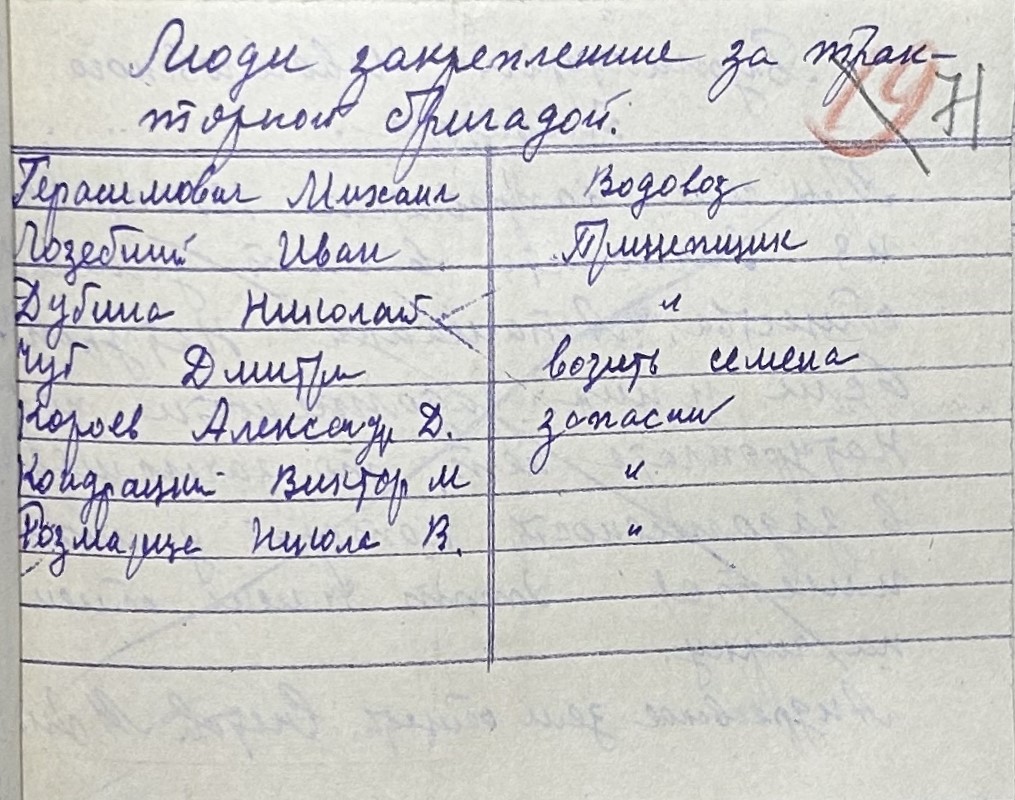 Люди закрепление за трак-
торной бригадой.
19 71
Герасимович Михаил Водовоз
Лозебний Иван Прицепщик
Дубина Николай "
Чуб Дмитри возить семена
Короев Александр Д. запасни
Кондрацкий Виктор М "
Розмарице Никола В. "